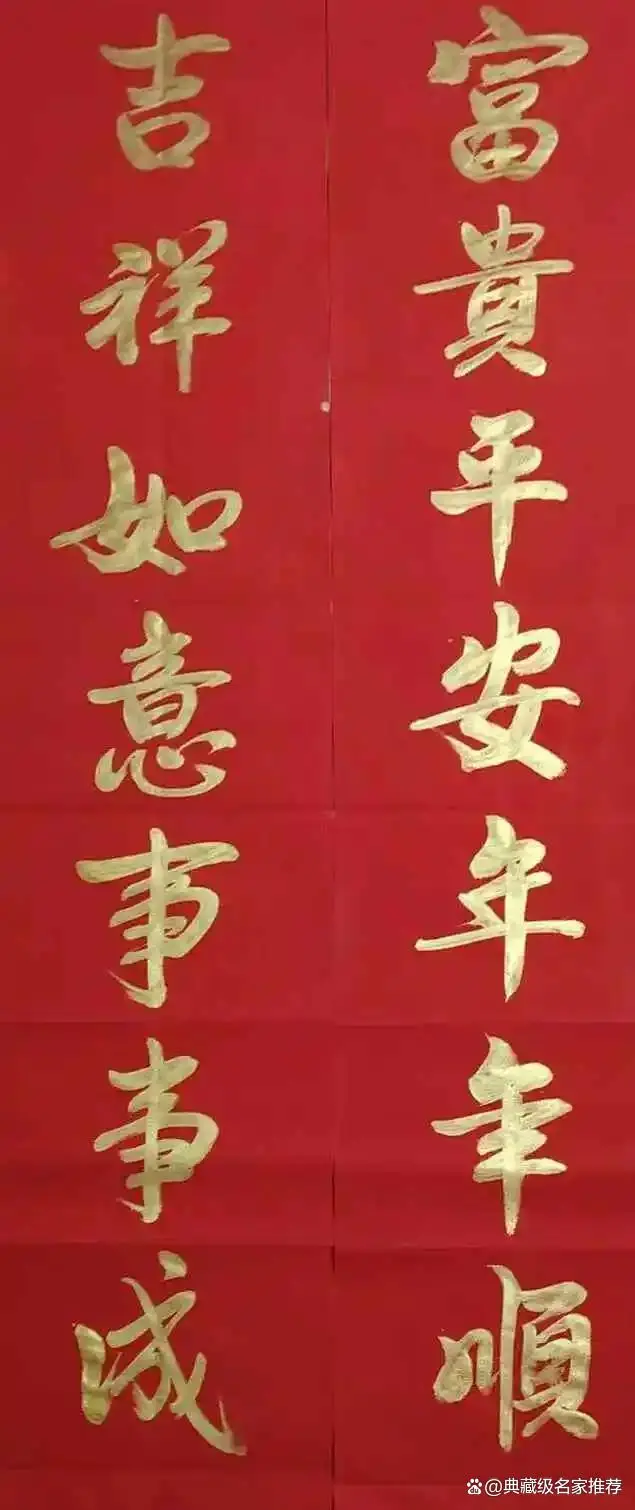 富貴平安年年順
吉祥如意事事成
@典藏级名家推荐